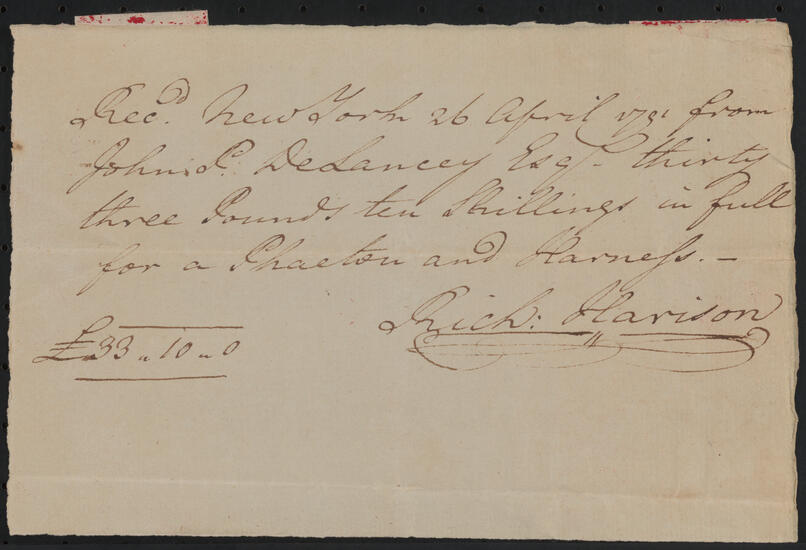 Rec.d New York 26 April 1791 from
John P. DeLancey Esq.r thirty
three Pounds ten Shillings in full
for a Phaeton and Harness. —
Rich: Harison
£33 „ 10 „ 0